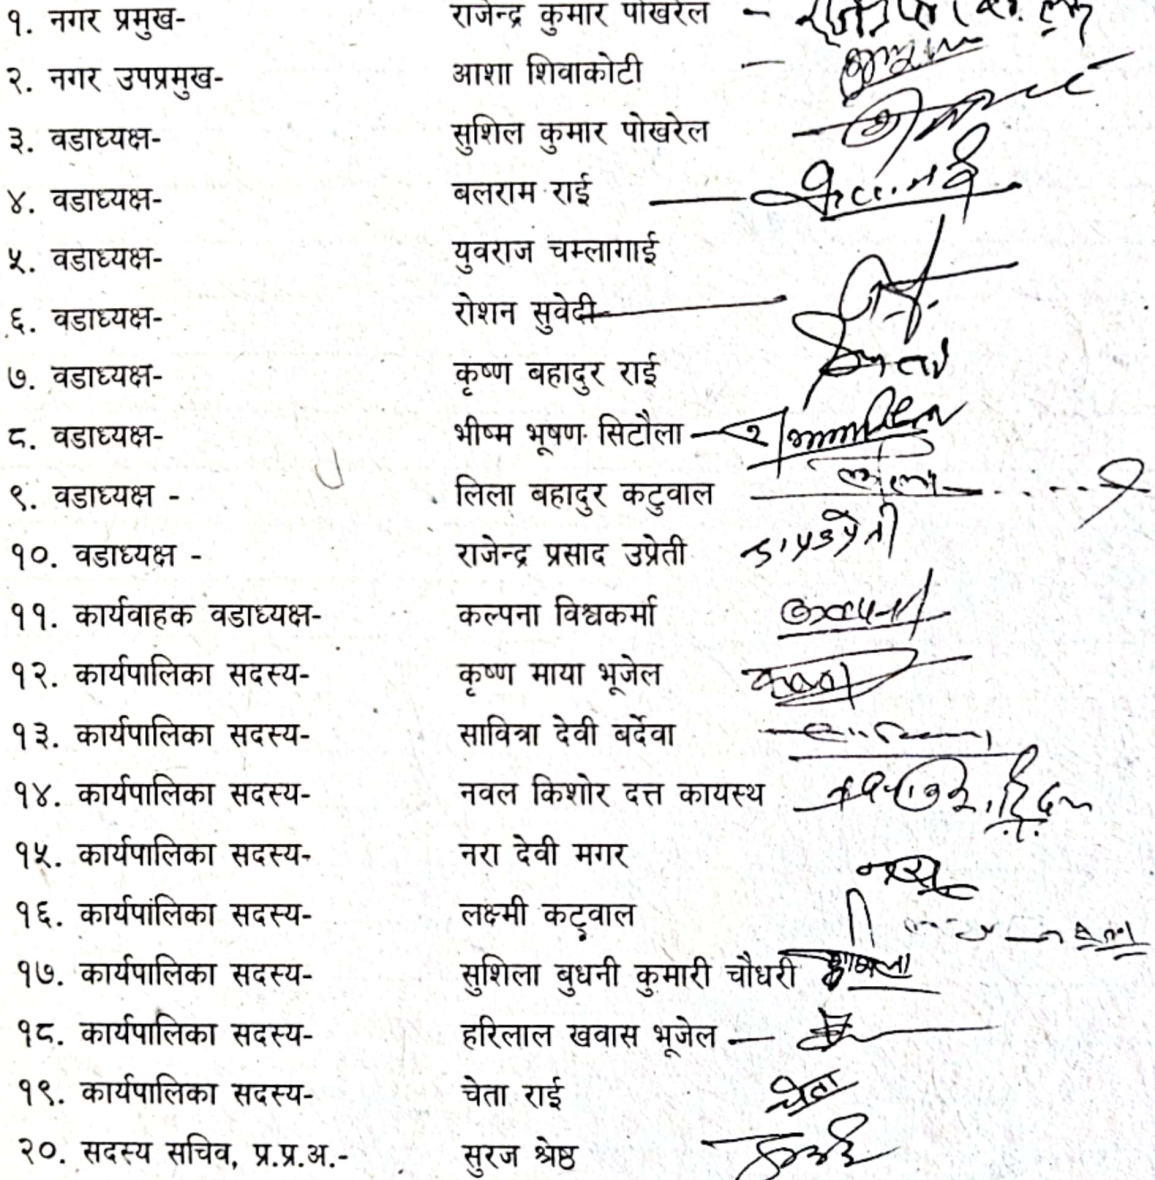 १. नगर प्रमुख- राजेन्द्र कुमार पोखरेल -
२. नगर उपप्रमुख- आशा शिवाकोटी -
३. वडाध्यक्ष- सुशिल कुमार पोखरेल
४. वडाध्यक्ष- बलराम राई
५. वडाध्यक्ष- युवराज चम्लागाई
६. वडाध्यक्ष- रोशन सुवेदी
७. वडाध्यक्ष- कृष्ण बहादुर राई
८. वडाध्यक्ष- भीष्म भूषण सिटौला
९. वडाध्यक्ष - लिला बहादुर कटुवाल
१०. वडाध्यक्ष - राजेन्द्र प्रसाद उप्रेती
११. कार्यवाहक वडाध्यक्ष- कल्पना विश्वकर्मा
१२. कार्यपालिका सदस्य- कृष्ण माया भूजेल
१३. कार्यपालिका सदस्य- सावित्रा देवी बर्देवा
१४. कार्यपालिका सदस्य- नवल किशोर दत्त कायस्थ
१५. कार्यपालिका सदस्य- नरा देवी मगर
१६. कार्यपालिका सदस्य- लक्ष्मी कटुवाल
१७. कार्यपालिका सदस्य- सुशिला बुधनी कुमारी चौधरी
१८. कार्यपालिका सदस्य- हरिलाल खवास भूजेल
१९. कार्यपालिका सदस्य- चेता राई चेता
२०. सदस्य सचिव, प्र.प्र.अ.- सुरज श्रेष्ठ